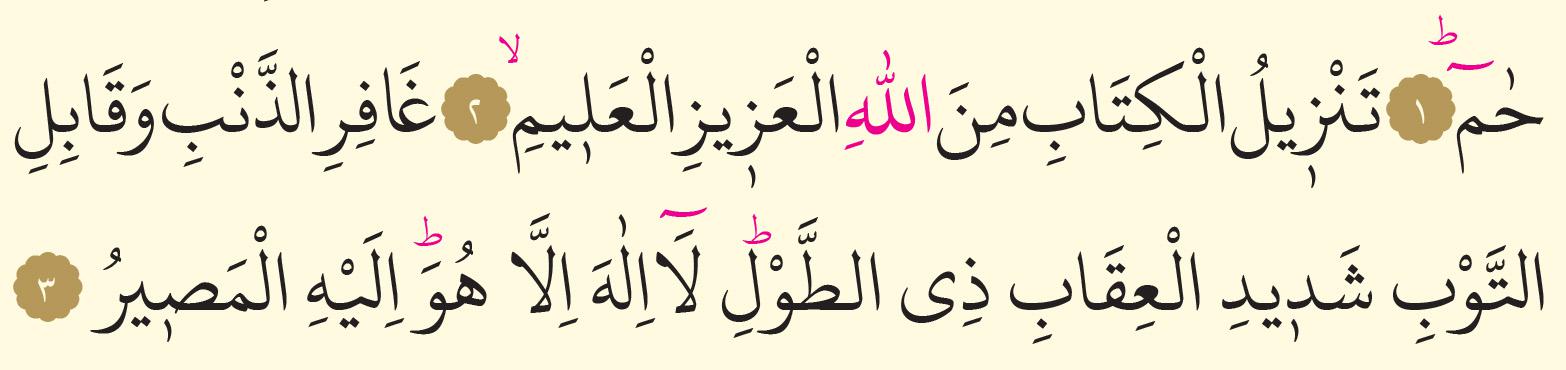 حٰمٓ ۚط ﴿١﴾ تَنْزٖيلُ الْكِتَابِ مِنَ اللّٰهِ الْعَزٖيزِ الْعَلٖيمِ ۙ ﴿٢﴾ غَافِرِ الذَّنْبِ وَقَابِلِ
التَّوْبِ شَدٖيدِ الْعِقَابِ ذِى الطَّوْلِ ط لَٓا اِلٰهَ اِلَّا هُوَ ط اِلَيْهِ الْمَصٖيرُ ﴿٣﴾